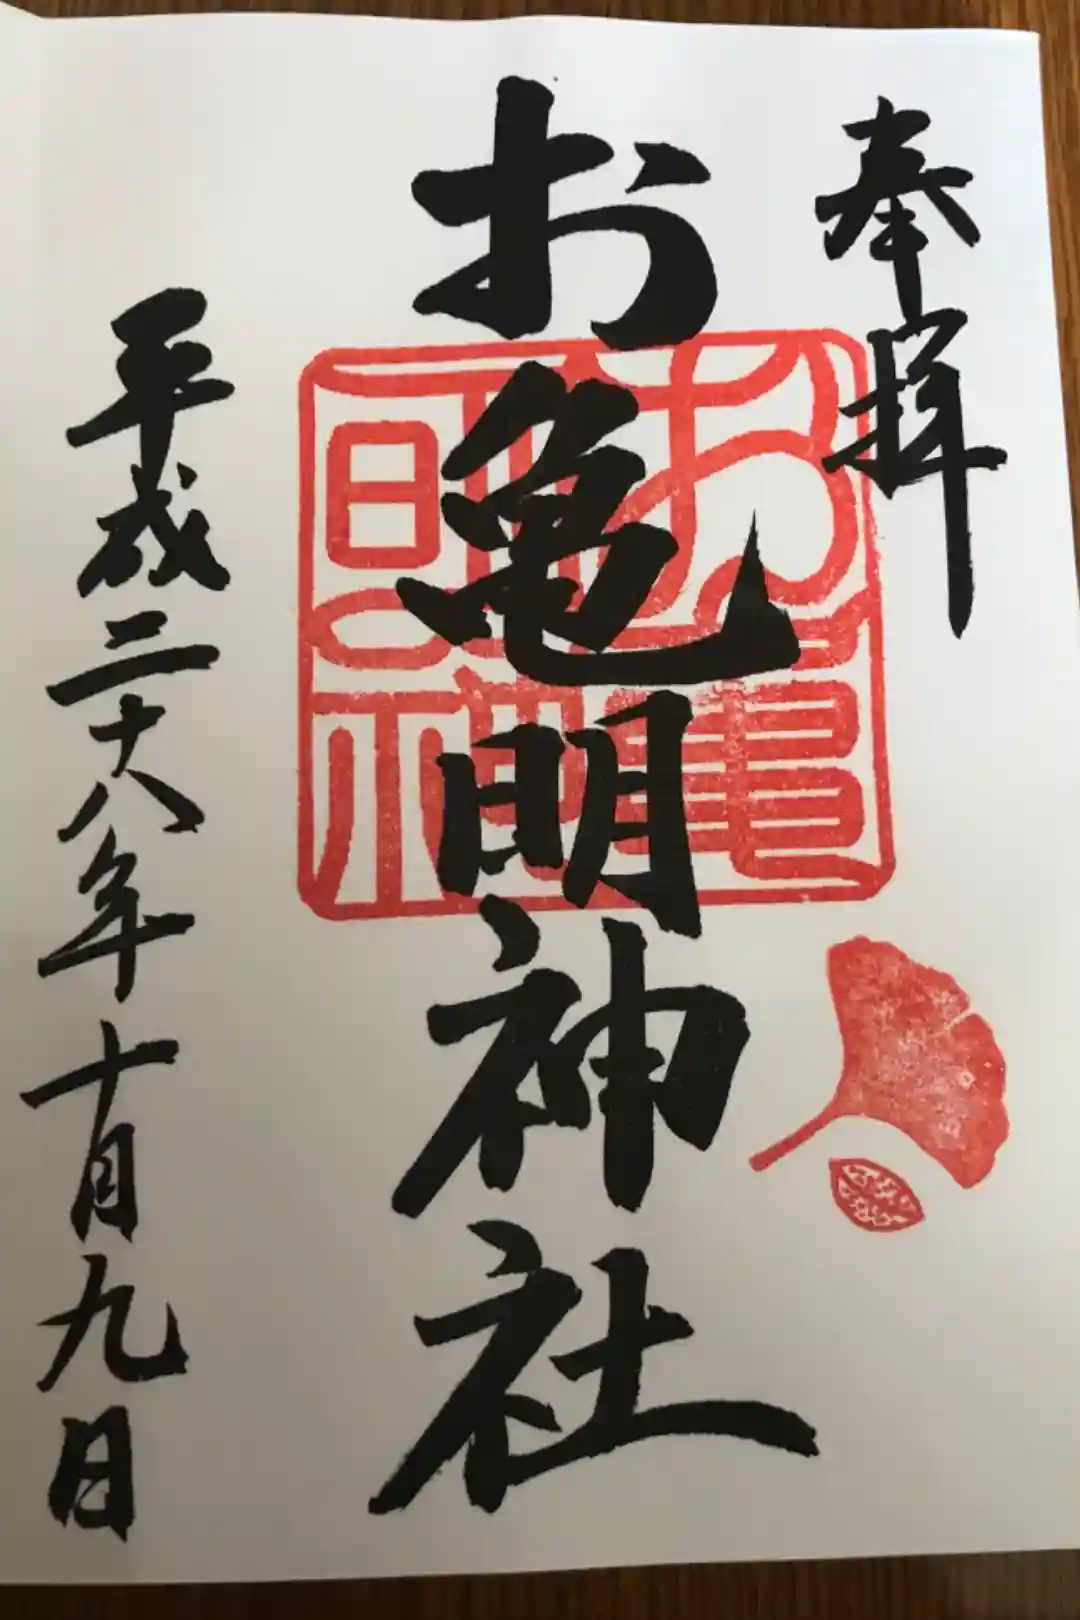 奉拝
お亀明神社
お亀
明神
平成二十八年十月九日